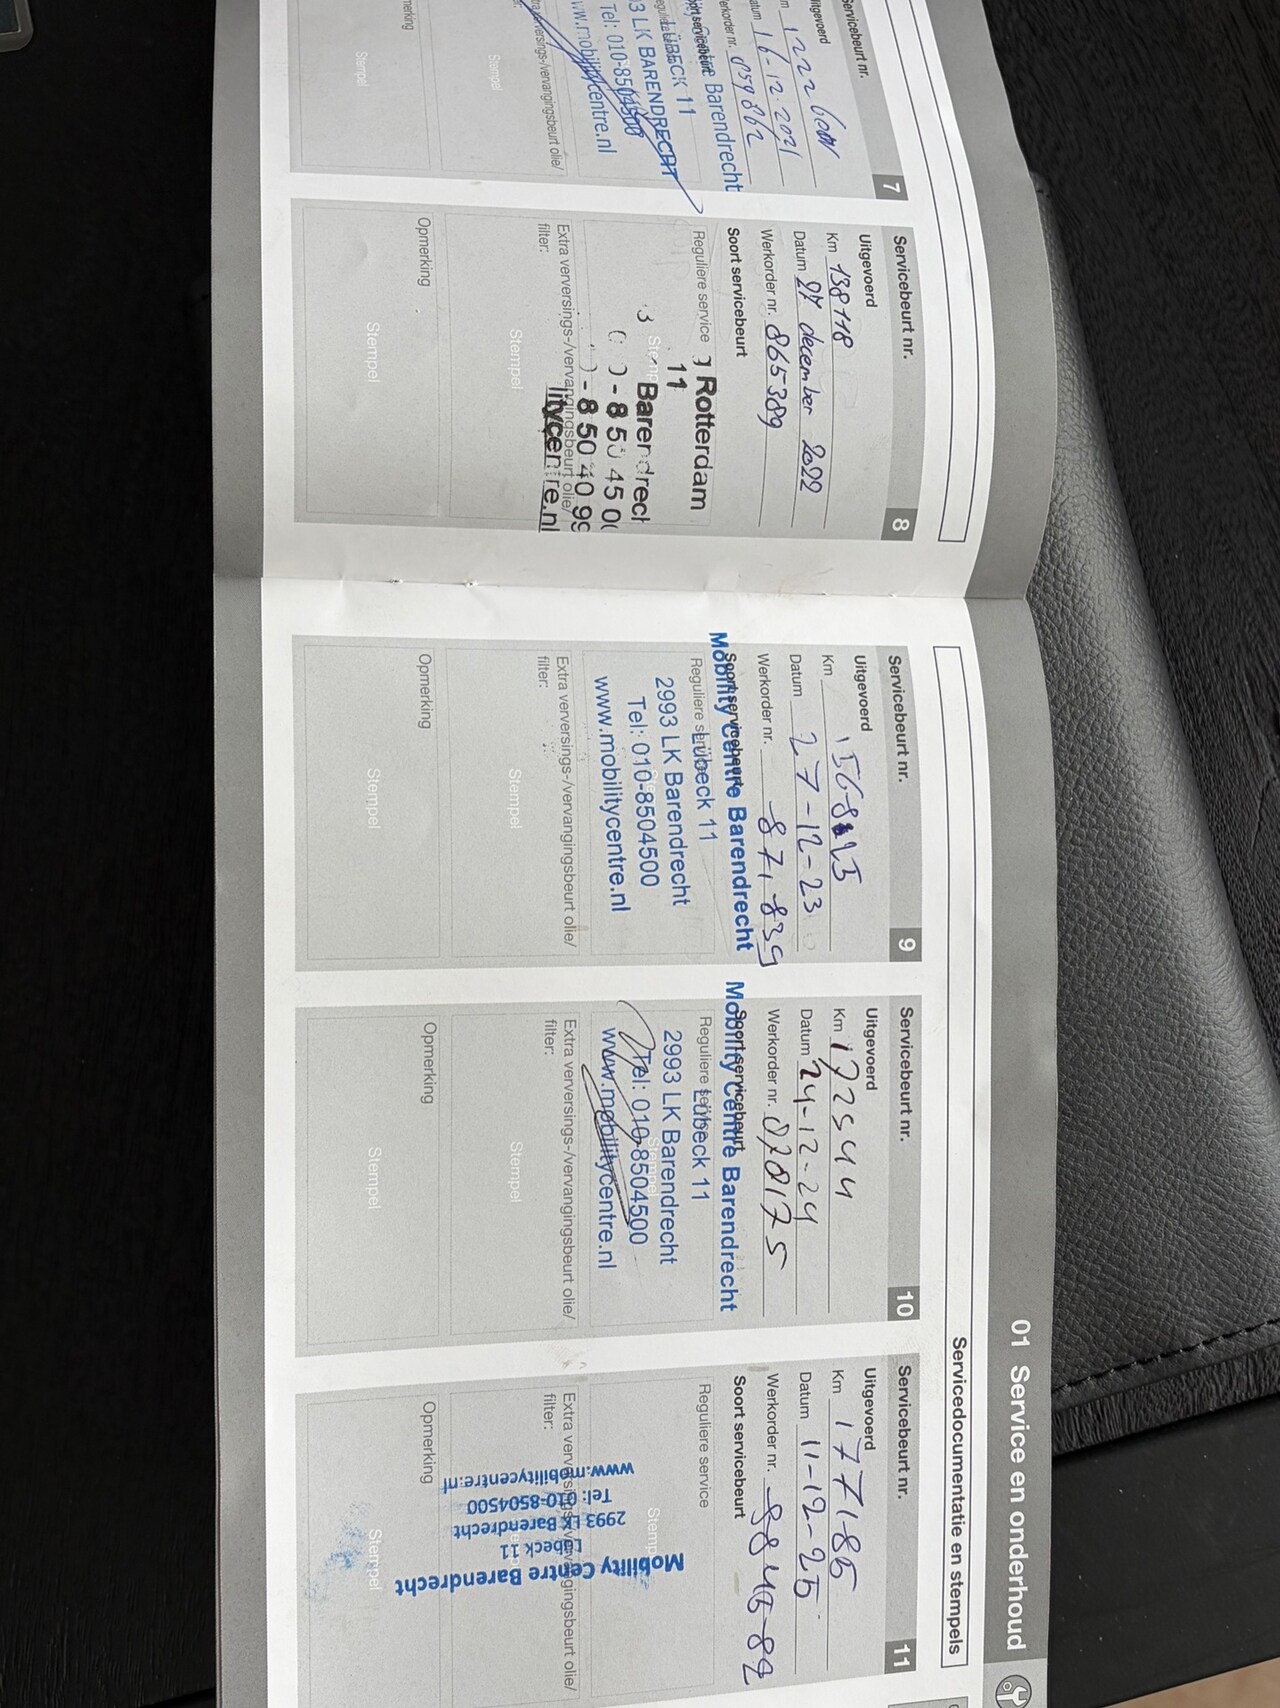 01 Service en onderhoud
Servicedocumentatie en stempels
Servicebeurt nr. 7
Uitgevoerd
Datum 16-12-2021
Werkorder nr. 859862
Barendrecht
LÜBECK 11
LK BARENDRECHT
Tel: 010-8504500
www.mobilitycentre.nl
verversings-/vervangingsbeurt olie/
Stempel
Stempel
Servicebeurt nr. 8
Uitgevoerd
Km 138118
Datum 27 december 2022
Werkorder nr. 865389
Soort servicebeurt
Reguliere service
Rotterdam
11
Barendrech
litycentre.nl
Extra verversings-/vervangingsbeurt olie/
filter:
Stempel
Opmerking
Stempel
Servicebeurt nr. 9
Uitgevoerd
Km
Datum 27-12-23
Werkorder nr. 871839
Soort servicebeurt
Mobility Centre Barendrecht
Reguliere service
Lübeck 11
2993 LK Barendrecht
Tel: 010-8504500
www.mobilitycentre.nl
Extra verversings-/vervangingsbeurt olie/
filter:
Stempel
Opmerking
Stempel
Servicebeurt nr. 10
Uitgevoerd
Km 172544
Datum 24-12-24
Werkorder nr.
Soort servicebeurt
Mobility Centre Barendrecht
Reguliere service
Lübeck 11
2993 LK Barendrecht
Tel: 010-8504500
www.mobilitycentre.nl
Extra verversings-/vervangingsbeurt olie/
filter:
Stempel
Opmerking
Stempel
Servicebeurt nr. 11
Uitgevoerd
Km 177185
Datum 11-12-25
Werkorder nr.
Soort servicebeurt
Reguliere service
Extra verversings-/vervangingsbeurt olie/
filter:
Mobility Centre Barendrecht
Lübeck 11
2993 LK Barendrecht
Tel: 010-8504500
www.mobilitycentre.nl
Opmerking
Stempel